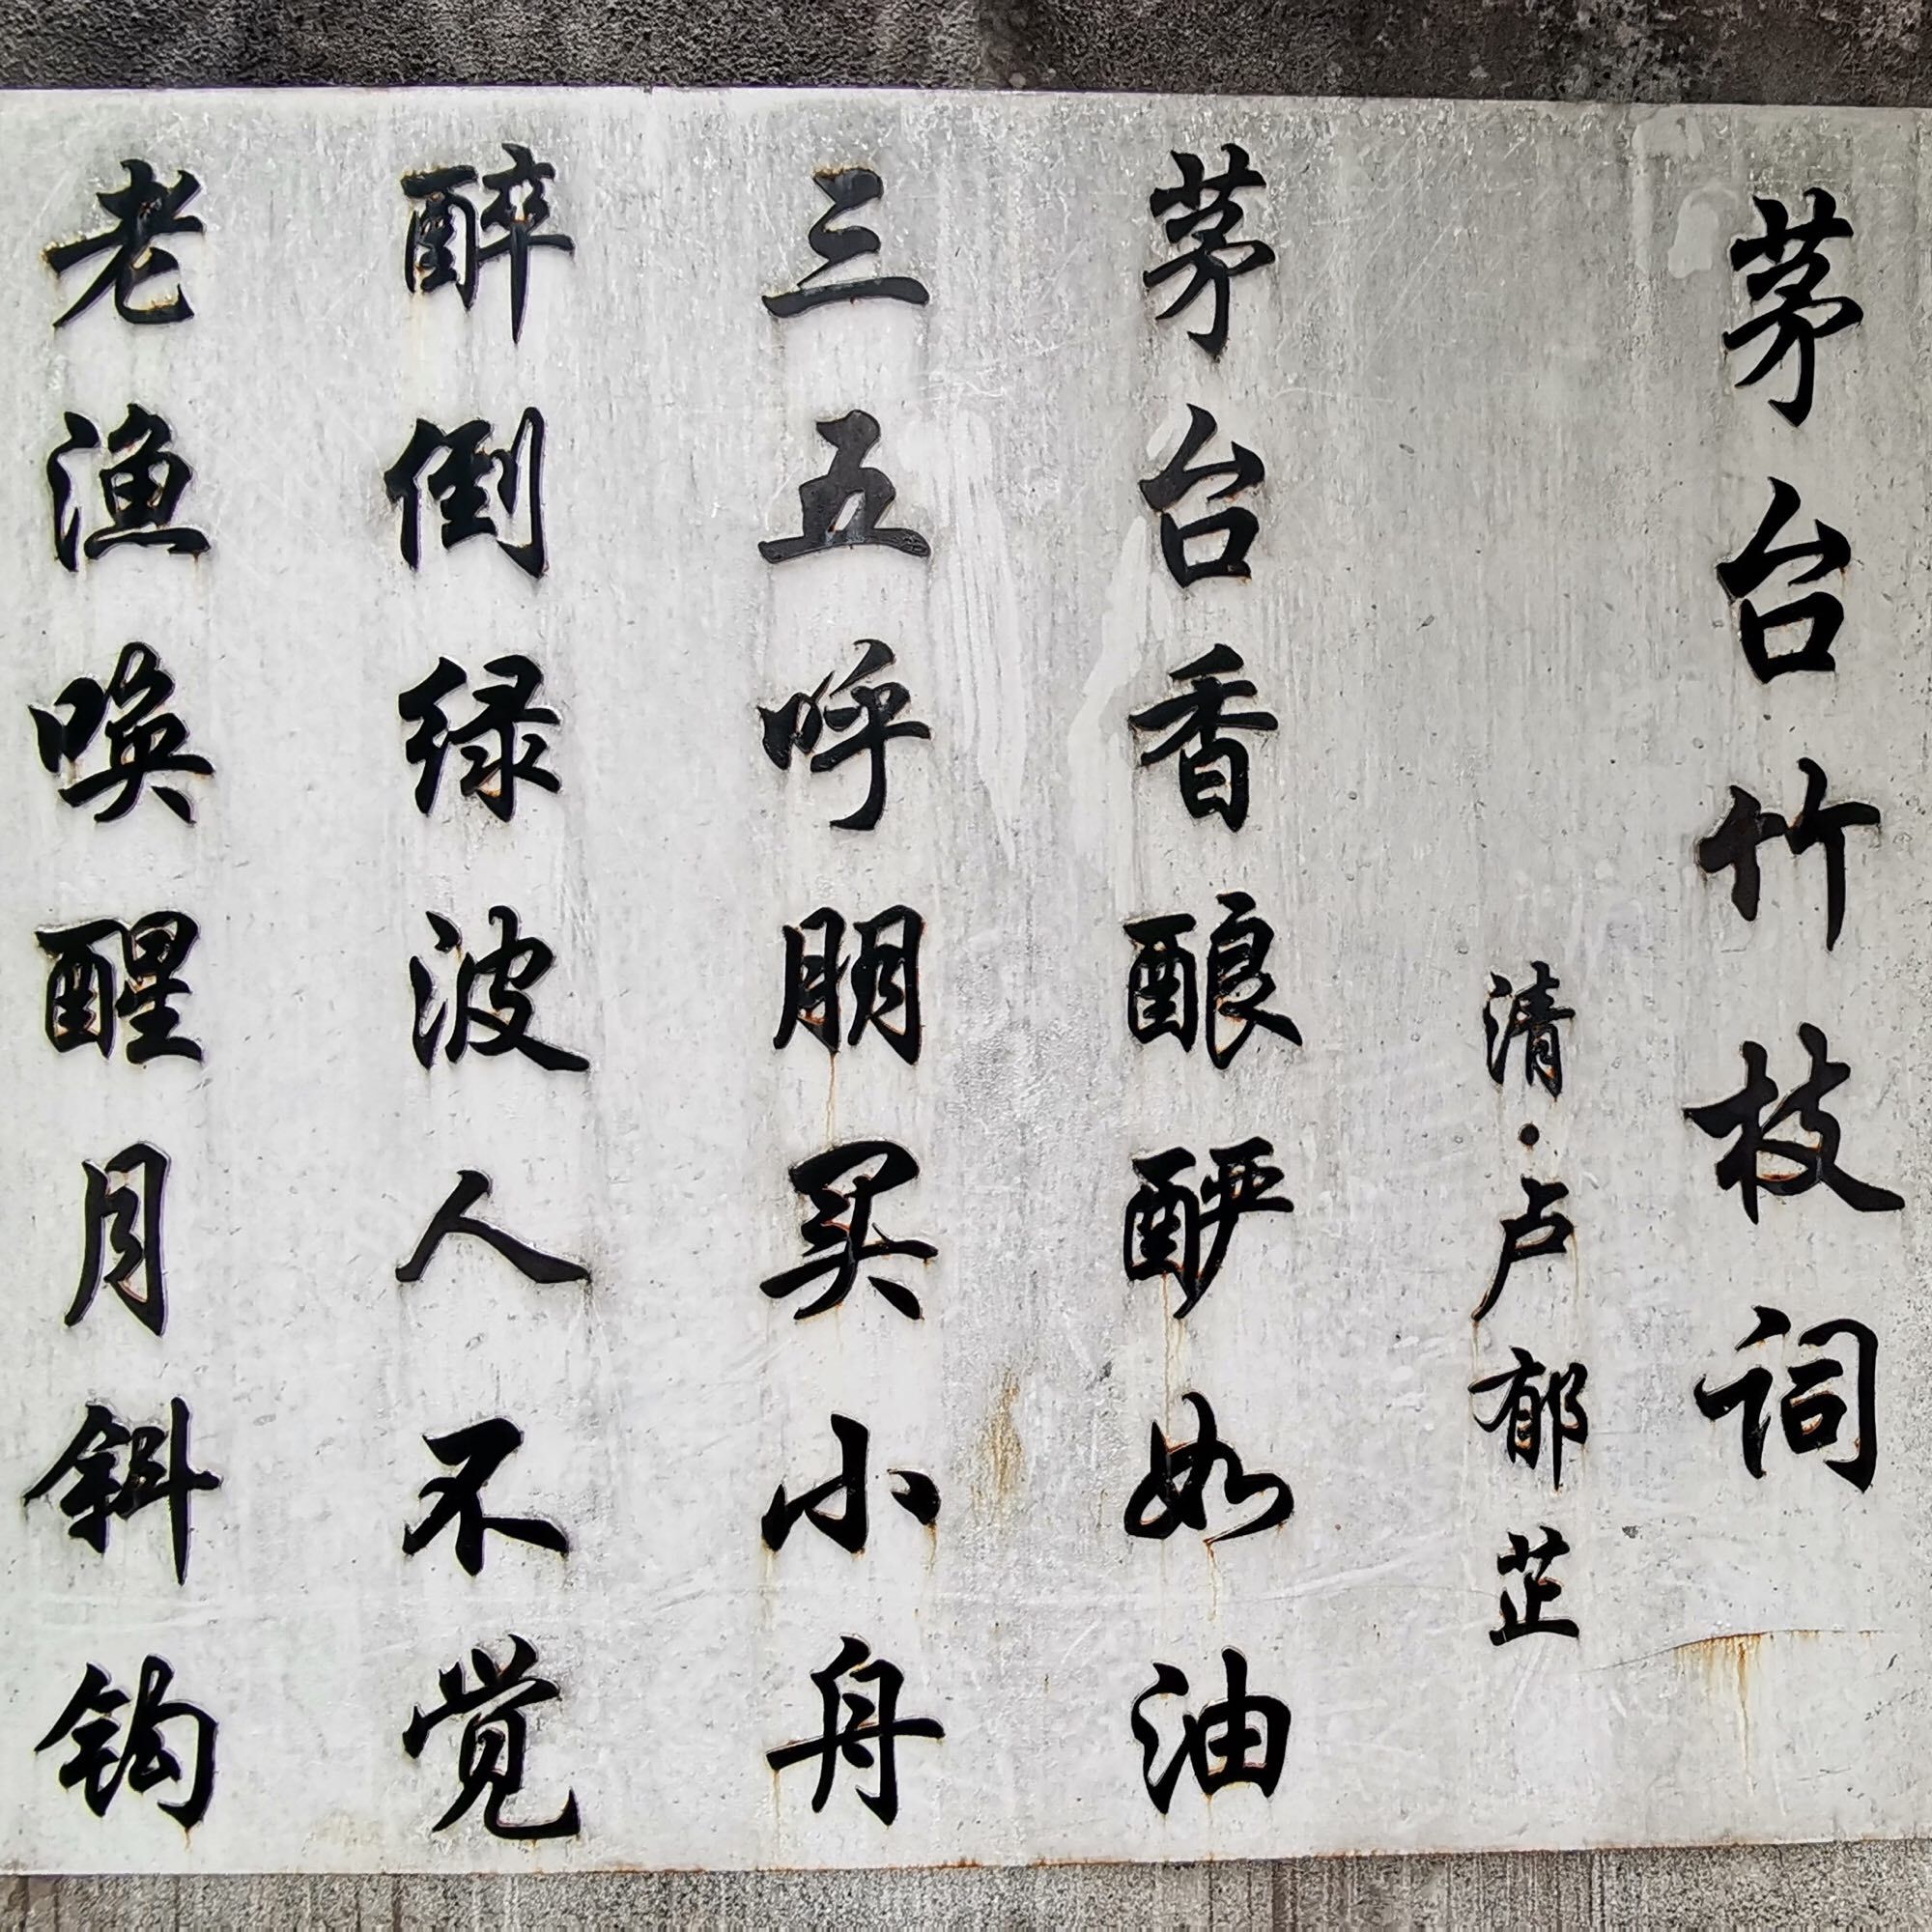 茅台竹枝词
清·卢郁芷
茅台香酿酽如油
三五呼朋买小舟
醉倒绿波人不觉
老渔唤醒月斜钩